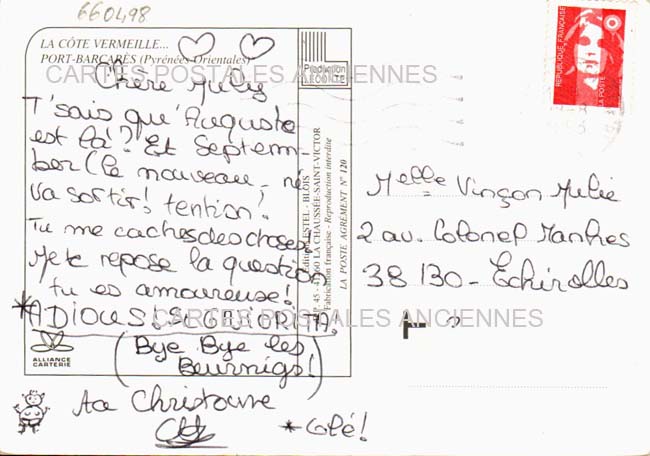 660498
LA CÔTE VERMEILLE...
PORT-BARCARÈS (Pyrénées Orientales)
CARTES POSTALES ANCIENNES
Chère July
T'sais que Auguste
est là? Et Septem-
ber (le nouveau-né
va sortir! tention!
Tu me caches des choses!
Je te repose la question
tu es amoureuse!
*ADIOUS SEGNORITA.
(Bye Bye les
Beurnigs!)
Ta Christowe
*Olé!
ALLIANCE
CARTERIE
Production
LECONTE
ESTEL - BLOIS
B.P. 45 - 41260 LA CHAUSSÉE-SAINT-VICTOR
Fabrication française - Reproduction interdite
LA POSTE AGRÉMENT N° 120
REPUBLIQUE FRANÇAISE
LA POSTE
Melle Vinçon Julie
2 av. Colonel Manhes
38 130 - Echirolles
CARTES POSTALES ANCIENNES